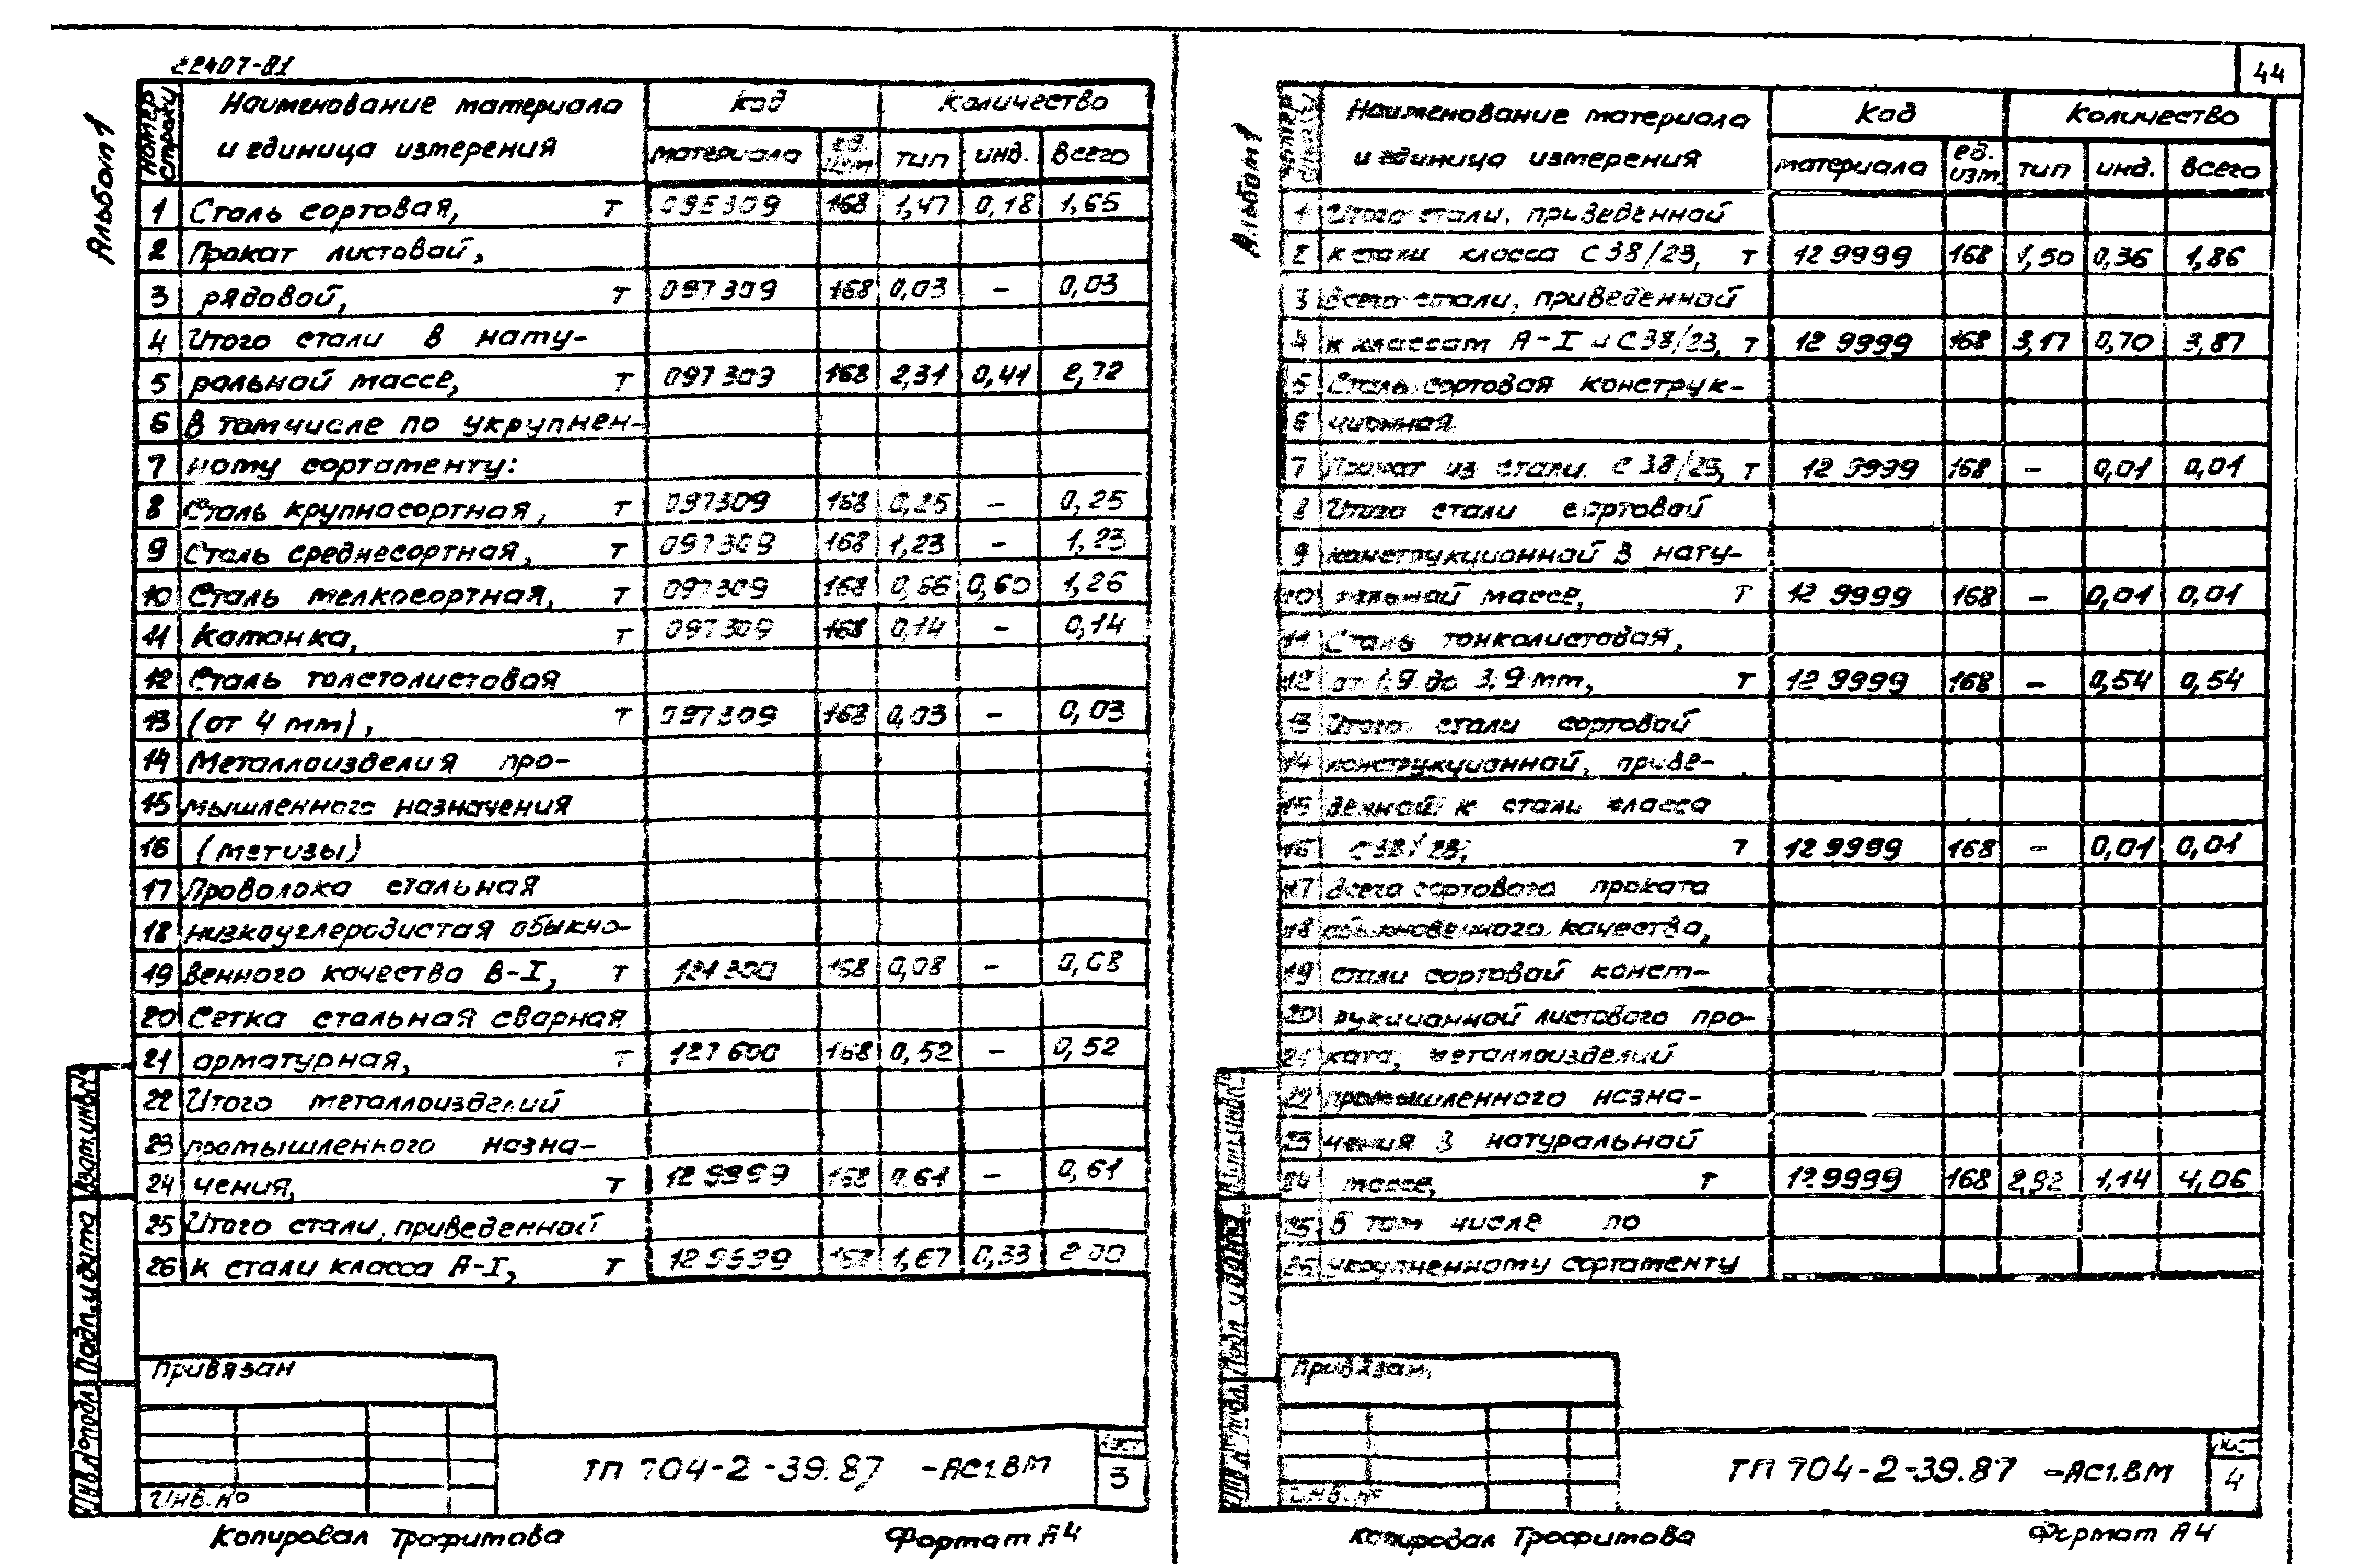 22407-81
Альбом 1
Номер строки | Наименование материала и единица измерения | Код | Количество
материала | ед. изм. | тип | инд. | всего
1 Сталь сортовая, т 095309 168 1,47 0,18 1,65
2 Прокат листовой,
3 рядовой, т 097309 168 0,03 – 0,03
4 Итого стали в нату-
5 ральной массе, т 097303 168 2,31 0,41 2,72
6 В том числе по укрупнен-
7 ному сортаменту:
8 Сталь крупносортная, т 097309 168 0,25 – 0,25
9 Сталь среднесортная, т 097309 168 1,23 – 1,23
10 Сталь мелкосортная, т 097309 168 0,66 0,60 1,26
11 Катанка, т 097309 168 0,14 – 0,14
12 Сталь толстолистовая
13 (от 4 мм), т 097309 168 0,03 – 0,03
14 Металлоизделия про-
15 мышленного назначения
16 (метизы)
17 Проволока стальная
18 низкоуглеродистая обыкно-
19 венного качества В-I, т 121300 168 0,08 – 0,08
20 Сетка стальная сварная
21 арматурная, т 127600 168 0,52 – 0,52
22 Итого металлоизделий
23 промышленного назна-
24 чения, т 129999 168 0,61 – 0,61
25 Итого стали, приведенной
26 к стали класса А-I, т 129999 168 1,67 0,33 2,00
Привязан
Инв.№
ТП 704-2-39.87 -АС1.ВМ
Лист
3
Взам.инв.№
Подп.и дата
Инв.№подл.
Копировал Трофимова Формат А4
44
Альбом 1
Номер строки | Наименование материала и единица измерения | Код | Количество
материала | ед. изм. | тип | инд. | всего
1 Итого стали, приведенной
2 к стали класса С38/23, т 129999 168 1,50 0,36 1,86
3 Всего стали, приведенной
4 к классам А-I и С38/23, т 129999 168 3,17 0,70 3,87
5 Сталь сортовая конструк-
6 ционная
7 Прокат из стали С38/23, т 129999 168 – 0,01 0,01
8 Итого стали сортовой
9 конструкционной в нату-
10 ральной массе, т 129999 168 – 0,01 0,01
11 Сталь тонколистовая,
12 от 1,9 до 3,9 мм, т 129999 168 – 0,54 0,54
13 Итого стали сортовой
14 конструкционной, приве-
15 денной к стали класса
16 С38/23, т 129999 168 – 0,01 0,01
17 Всего сортового проката
18 обыкновенного качества,
19 стали сортовой конст-
20 рукционной листового про-
21 ката, металлоизделий
22 промышленного назна-
23 чения в натуральной
24 массе, т 129999 168 2,92 1,14 4,06
25 В том числе по
26 укрупненному сортаменту
Привязан
Инв.№
ТП 704-2-39.87 -АС1.ВМ
Лист
4
Взам.инв.№
Подп. и дата
Инв.№подл.
Копировал Трофимова Формат А4